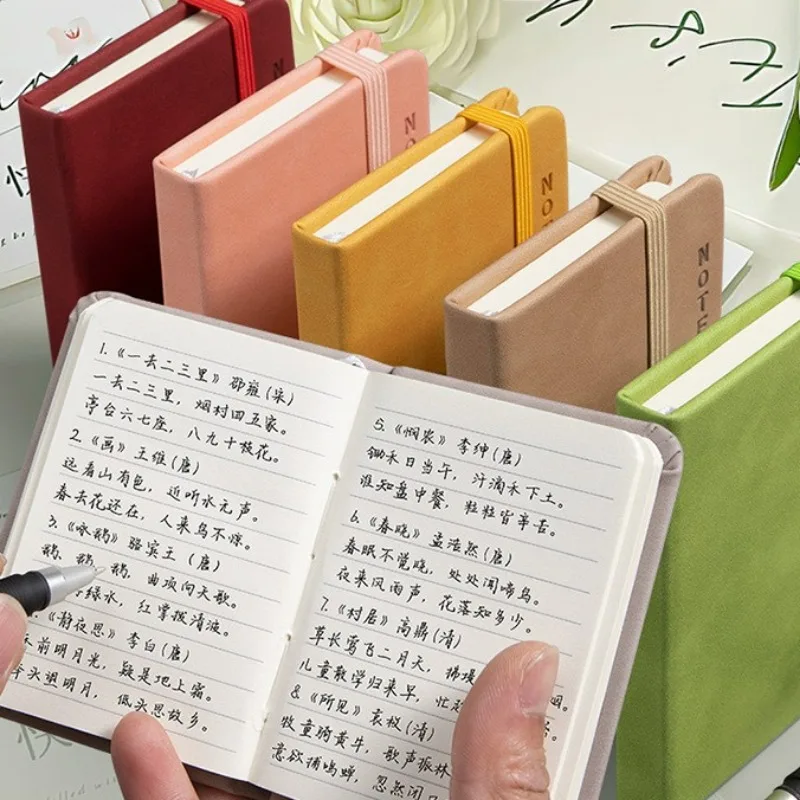 NOTE
1.《一去二三里》邵雍(宋)
一去二三里，烟村四五家。
亭台六七座，八九十枝花。
2.《画》王维(唐)
远看山有色，近听水无声。
春去花还在，人来鸟不惊。
3.《咏鹅》骆宾王(唐)
鹅、鹅、鹅，曲项向天歌。
绿水，红掌拨清波。
《静夜思》李白(唐)
前明月光，疑是地上霜。
头望明月，低头思故乡。
5.《悯农》李绅(唐)
锄禾日当午，汗滴禾下土。
谁知盘中餐，粒粒皆辛苦。
6.《春晓》孟浩然(唐)
春眠不觉晓，处处闻啼鸟。
夜来风雨声，花落知多少。
7.《村居》高鼎(清)
草长莺飞二月天，拂堤 烟。
儿童散学归来早，忙
8.《所见》袁枚(清)
牧童骑黄牛，歌声振林
意欲捕鸣蝉，忽然闭口